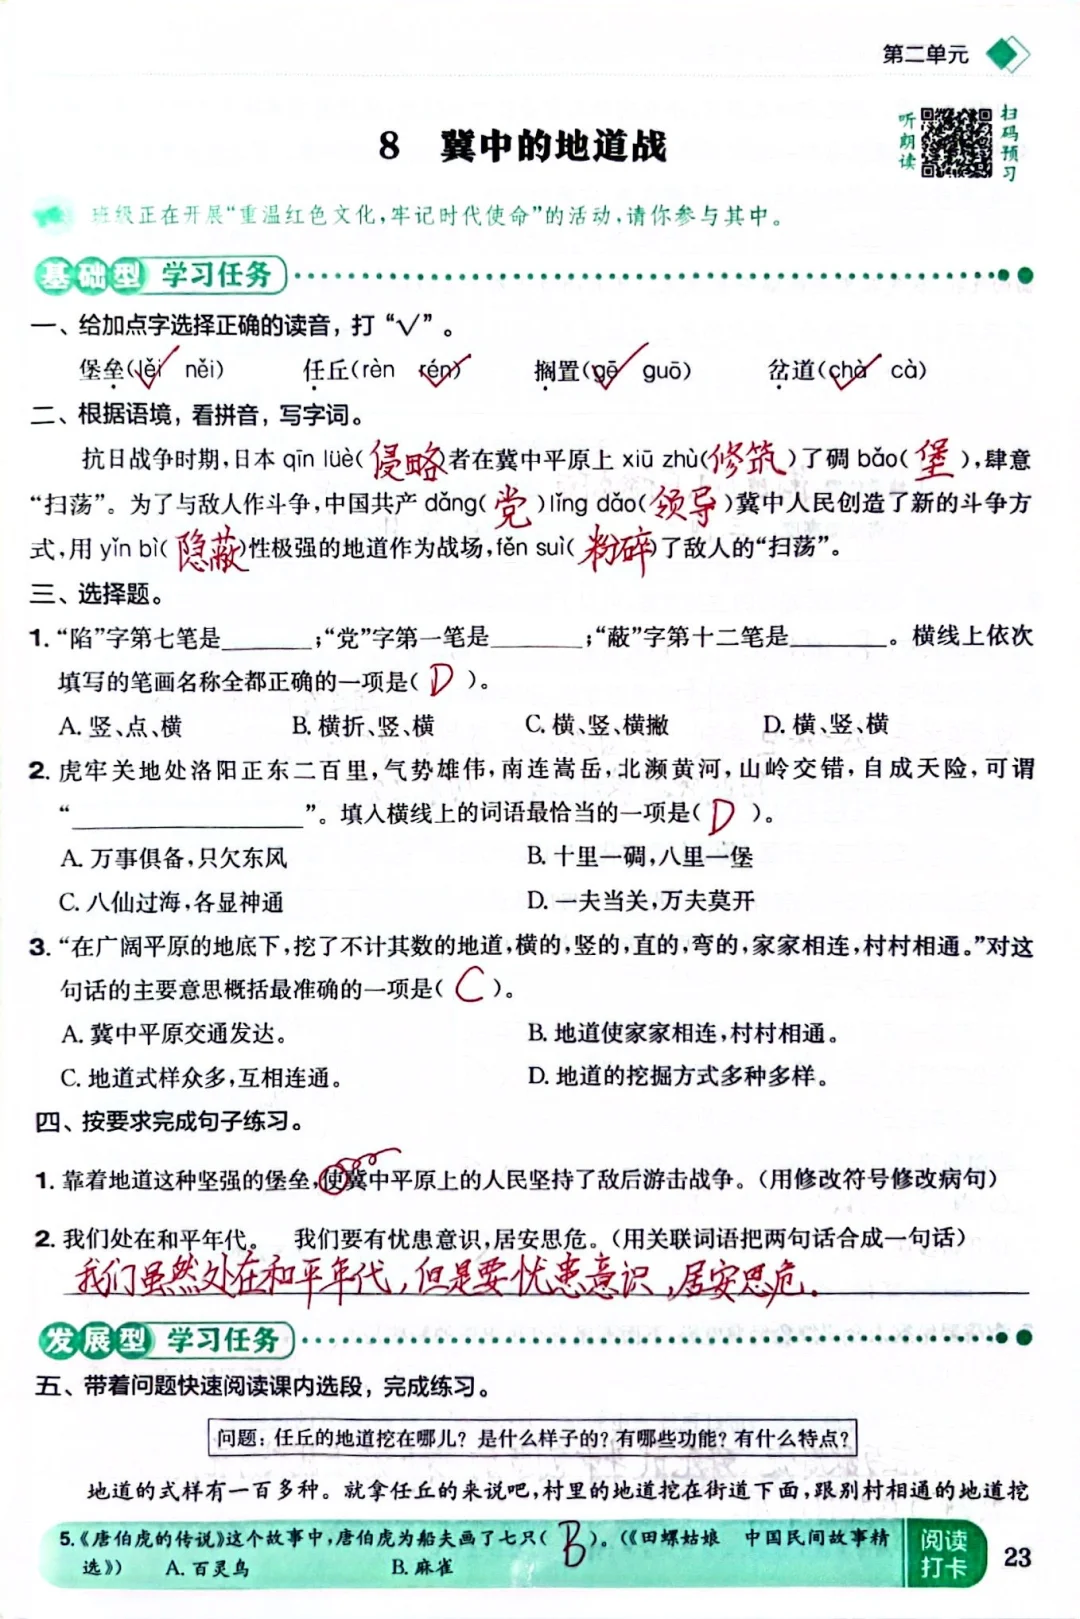 第二单元
听朗读
扫码预习
8 冀中的地道战
班级正在开展“重温红色文化,牢记时代使命”的活动,请你参与其中。
基础型 学习任务
一、给加点字选择正确的读音，打“√”。
堡垒(lěi√ něi) 任丘(rèn rén√) 搁置(gē√ guō) 岔道(chà√ cà)
二、根据语境，看拼音，写字词。
抗日战争时期,日本 qīn lüè(侵略)者在冀中平原上 xiū zhù(修筑)了碉 bǎo(堡),肆意
“扫荡”。为了与敌人作斗争,中国共产 dǎng(党)lǐng dǎo(领导)冀中人民创造了新的斗争方
式,用 yǐn bì(隐蔽)性极强的地道作为战场,fěn suì(粉碎)了敌人的“扫荡”。
三、选择题。
1. “陷”字第七笔是______;“党”字第一笔是______;“蔽”字第十二笔是______。横线上依次
填写的笔画名称全都正确的一项是(D)。
A. 竖、点、横 B. 横折、竖、横 C. 横、竖、横撇 D. 横、竖、横
2. 虎牢关地处洛阳正东二百里,气势雄伟,南连嵩岳,北濒黄河,山岭交错,自成天险,可谓
“______________”。填入横线上的词语最恰当的一项是(D)。
A. 万事俱备,只欠东风 B. 十里一碉,八里一堡
C. 八仙过海,各显神通 D. 一夫当关,万夫莫开
3. “在广阔平原的地底下,挖了不计其数的地道,横的,竖的,直的,弯的,家家相连,村村相通。”对这
句话的主要意思概括最准确的一项是(C)。
A. 冀中平原交通发达。 B. 地道使家家相连,村村相通。
C. 地道式样众多,互相连通。 D. 地道的挖掘方式多种多样。
四、按要求完成句子练习。
1. 靠着地道这种坚强的堡垒,使冀中平原上的人民坚持了敌后游击战争。(用修改符号修改病句)
2. 我们处在和平年代。 我们要有忧患意识,居安思危。(用关联词语把两句话合成一句话)
我们虽然处在和平年代,但是要忧患意识,居安思危.
发展型 学习任务
五、带着问题快速阅读课内选段，完成练习。
问题:任丘的地道挖在哪儿?是什么样子的?有哪些功能?有什么特点?
地道的式样有一百多种。就拿任丘的来说吧,村里的地道挖在街道下面,跟别村相通的地道挖
5.《唐伯虎的传说》这个故事中,唐伯虎为船夫画了七只(B)。(《田螺姑娘 中国民间故事精
选》) A. 百灵鸟 B. 麻雀
阅读打卡
23